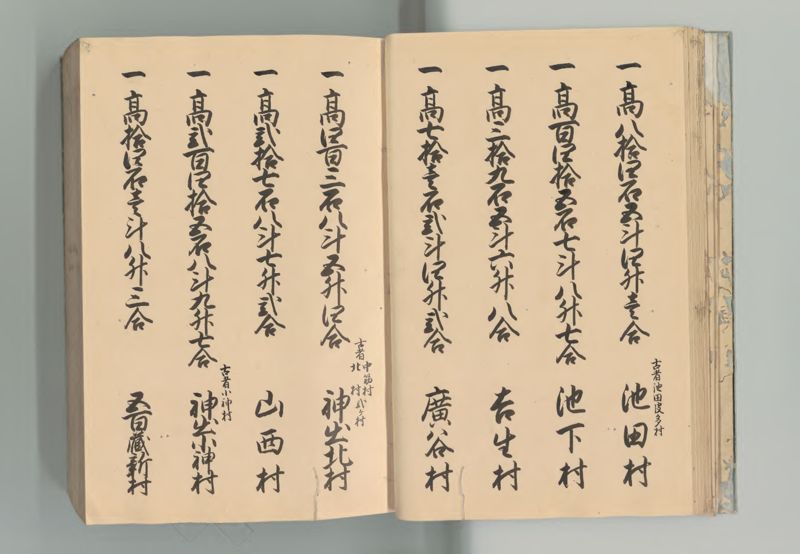 一高八拾四石五斗四升壱合
古者池田皮多村
池田村
一高百四拾五石七斗八升七合
池下村
一高三拾九石五斗六升八合
吉生村
一高七拾壱石弐斗四升弐合
廣谷村
一高四百三石八斗五升四合
古者
中筋村
北村
弐ヶ村
神出北村
一高弐拾七石八斗七升弐合
山西村
一高弐百四拾五石八斗九升七合
古者小神村
神出小神村
一高拾四石壱斗八升三合
五百蔵新村